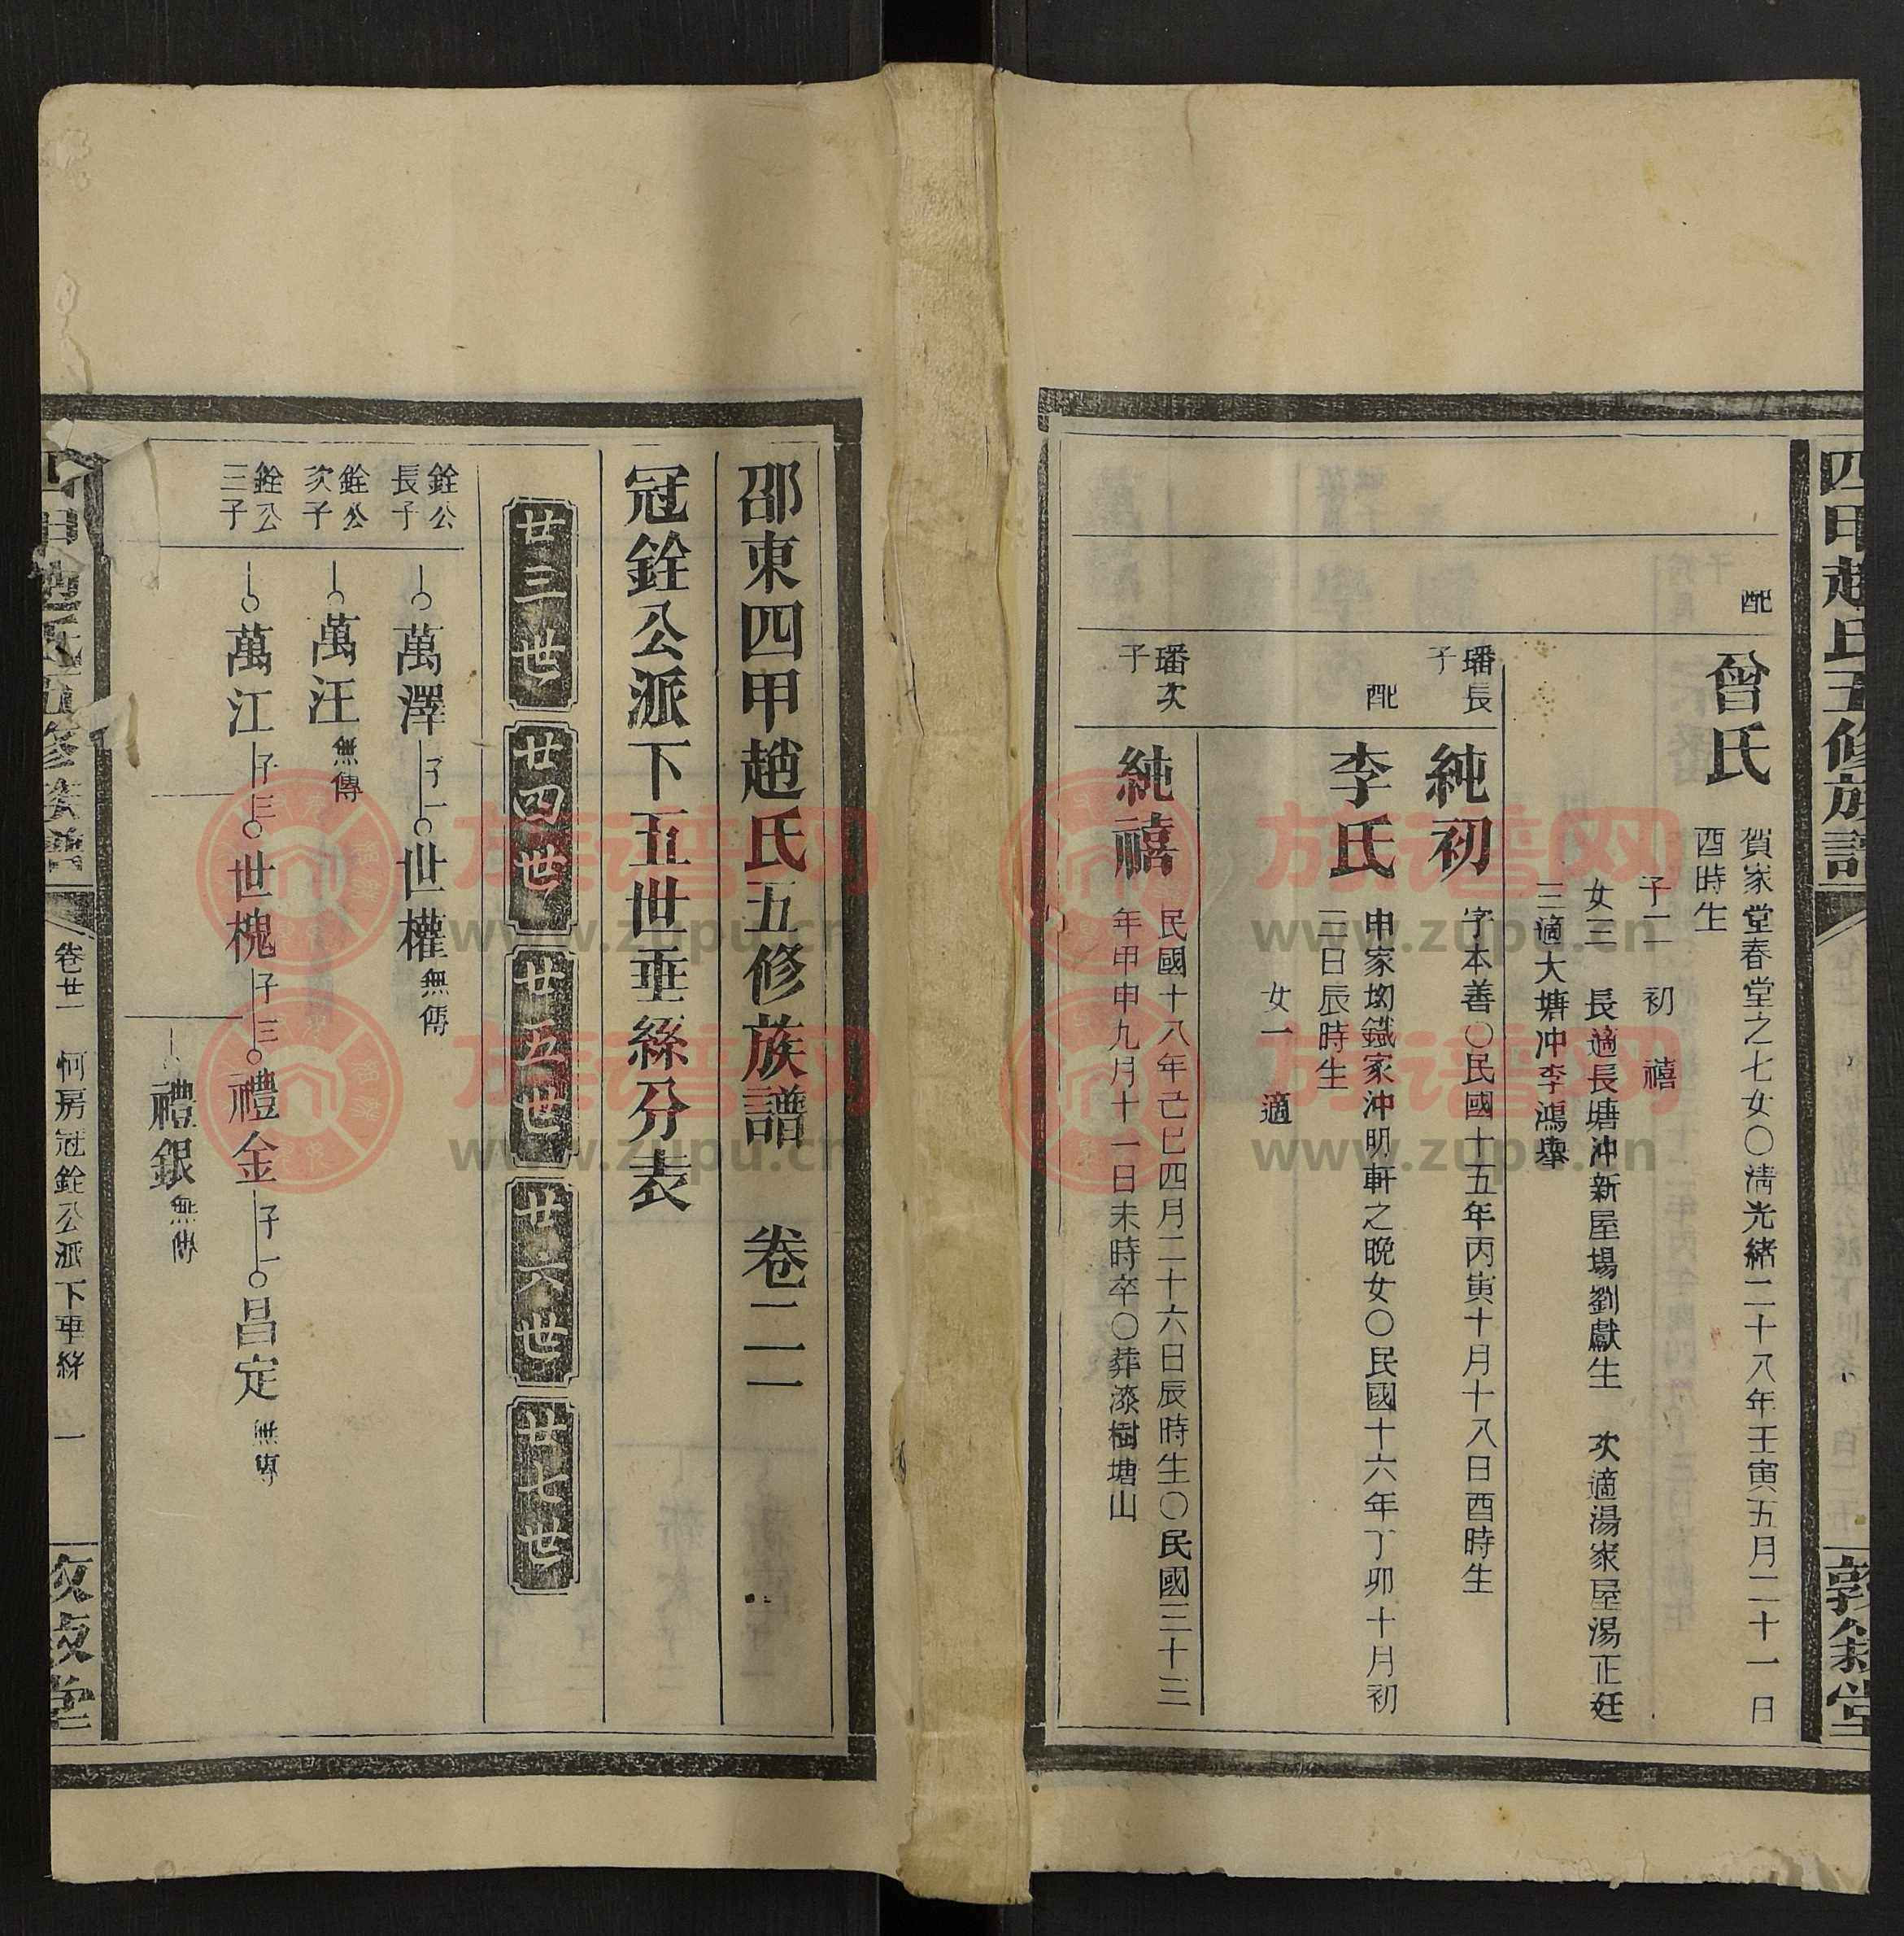 四甲趙氏五修族譜
敦敘堂
配
曾氏
賀家堂春堂之七女○清光緒二十八年壬寅五月二十一日
酉時生
子二 初 禧
女三 長適長塘冲新屋場劉獻生 次適湯家屋湯正廷
三適大塘冲李鴻舉
璠長
子
純初
字本善○民國十五年丙寅十月十八日酉時生
配
李氏
申家坳鐵家沖明軒之晚女○民國十六年丁卯十月初
二日辰時生
女一 適
璠次
子
純禧
民國十八年己巳四月二十六日辰時生○民國三十三
年甲申九月十一日未時卒○葬漆樹塘山
邵東四甲趙氏五修族譜 卷二一
冠銓公派下五世垂絲分表
廿三世
廿四世
廿五世
廿六世
廿七世
銓公
長子
萬澤 子一 世權 無傳
銓公
次子
萬汪 無傳
銓公
三子
萬江 子三 世槐 子三 禮金 子一 昌定 無傳
禮銀 無傳
四甲趙氏五修族譜
卷廿一
房冠銓公派下垂絲
一
敦敘堂
族谱网
www.zupu.cn
族谱网
www.zupu.cn
族谱网
www.zupu.cn
族谱网
www.zupu.cn